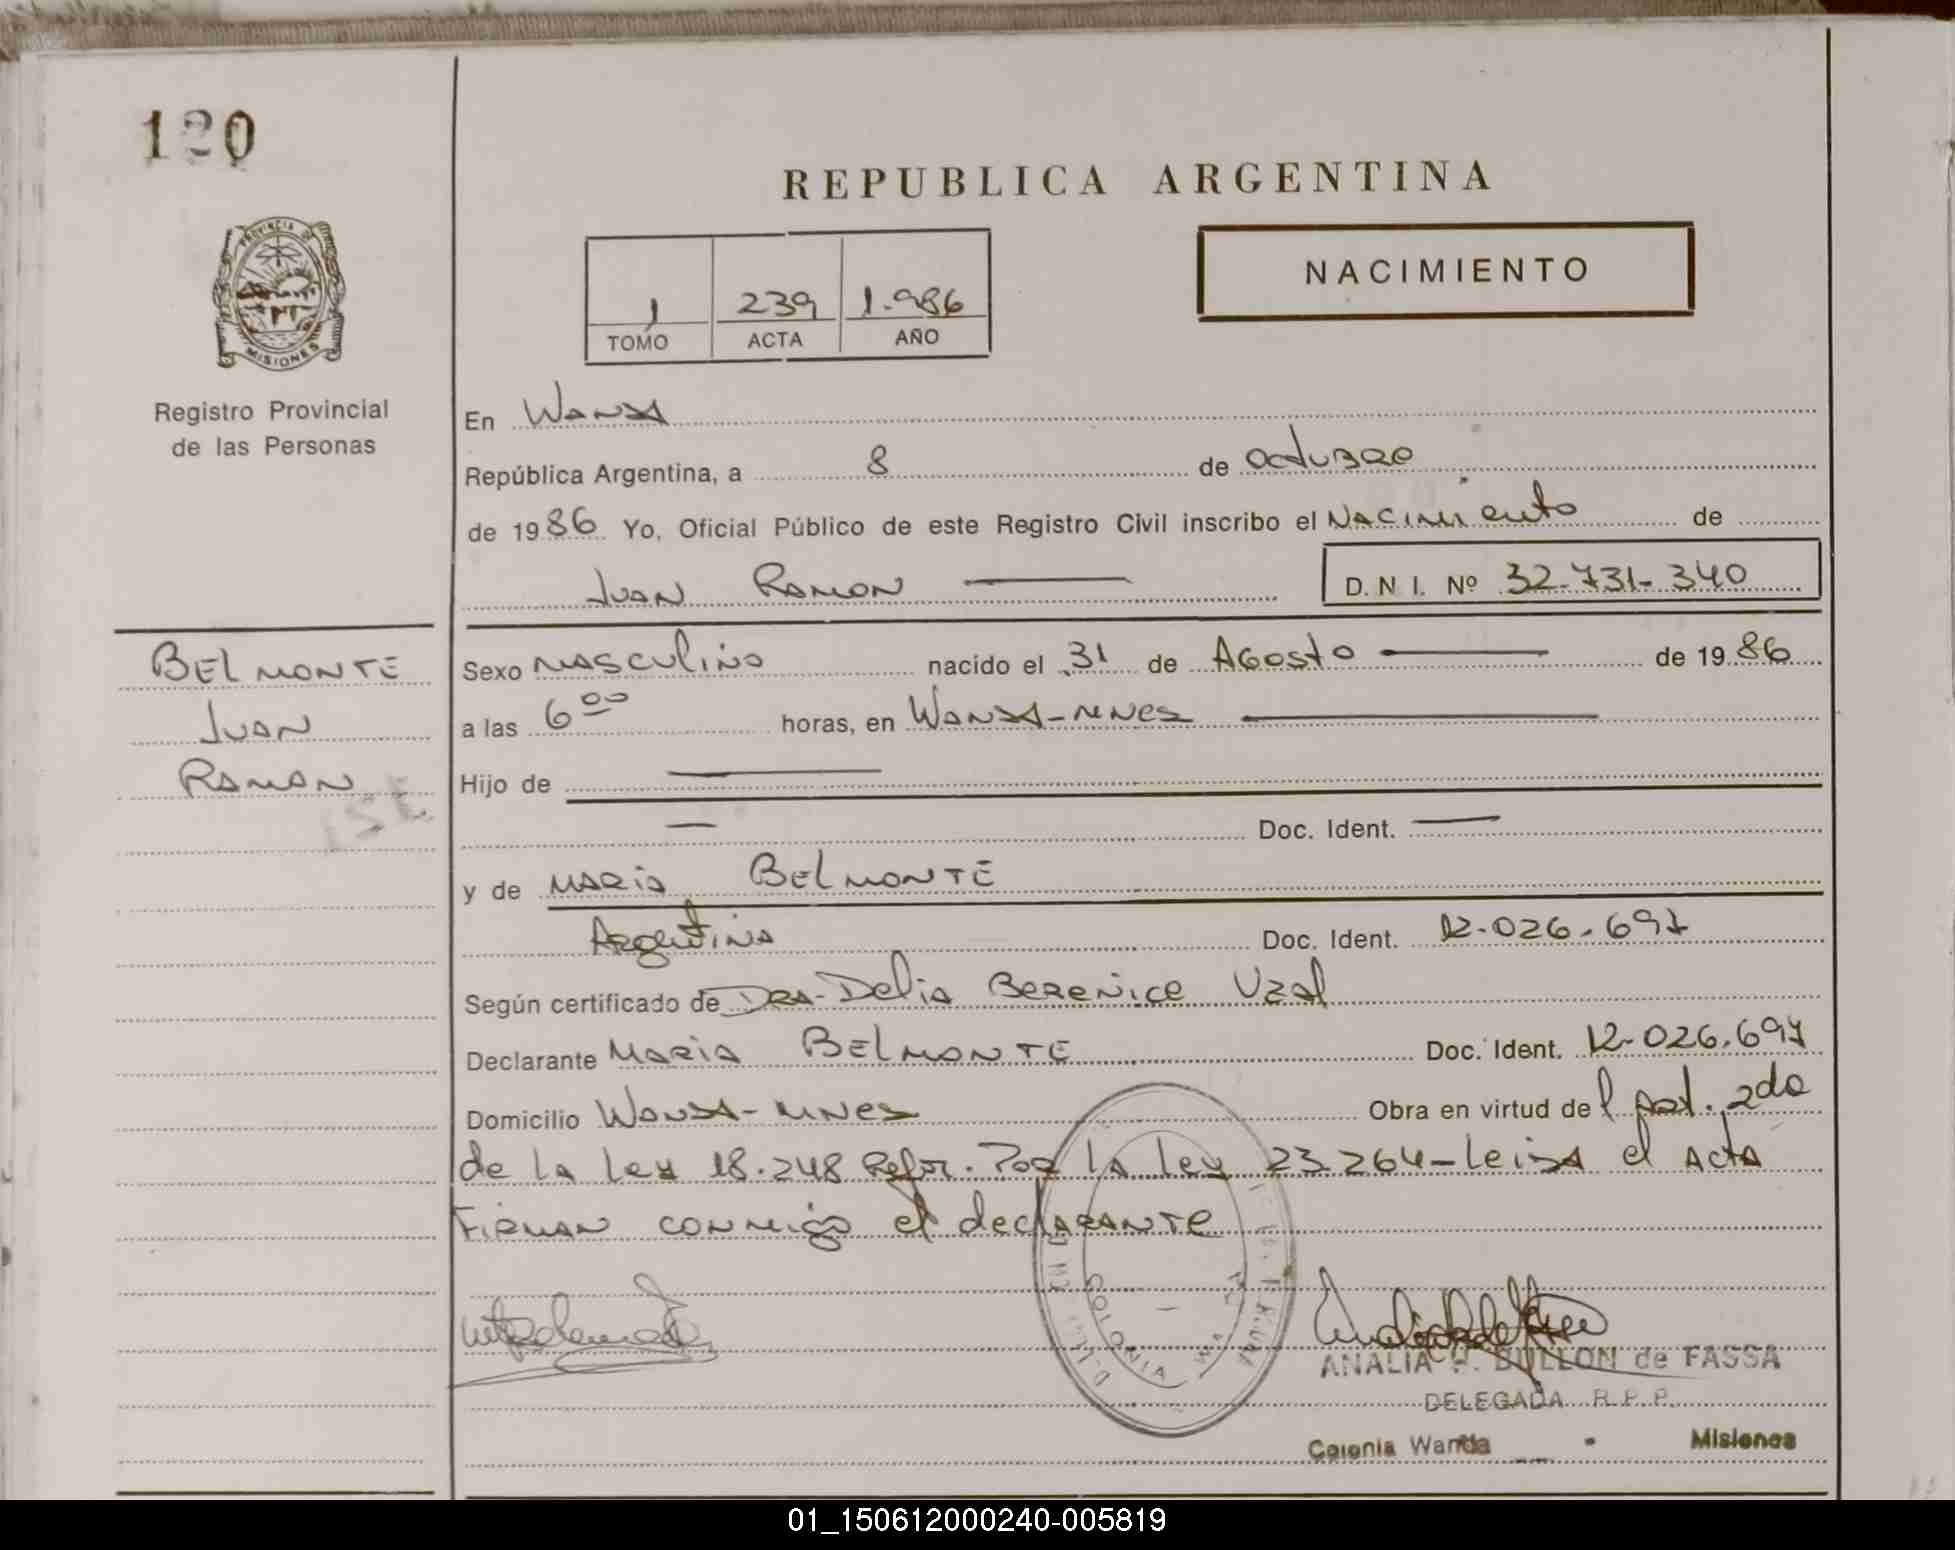 120
REPUBLICA ARGENTINA
PROVINCIA DE
MISIONES
NACIMIENTO
1 239 1.986
TOMO ACTA AÑO
Registro Provincial
de las Personas
En Wanda
República Argentina, a 8 de octubre
de 1986 Yo, Oficial Público de este Registro Civil inscribo el Nacimiento de
Juan Ramon D.N.I. Nº 32.731.340
BELMONTE
Juan
Ramon
Sexo masculino nacido el 31 de Agosto de 1986
a las 6⁰⁰ horas, en Wanda-Mnes
Hijo de
Doc. Ident.
y de Maria Belmonte
Argentina Doc. Ident. 12.026.697
Según certificado de Dra. Delia Berenice Uzal
Declarante Maria Belmonte Doc. Ident. 12.026.697
Domicilio Wanda-Mnes Obra en virtud del Art. 2do
de la Ley 18.248 Refor. Por la Ley 23.264-leida el Acta
Firman conmigo el declarante
COLONIA WANDA
ANALIA BULLON de FASSA
DELEGADA R.P.P.
Colonia Wanda - Misiones
01_150612000240-005819